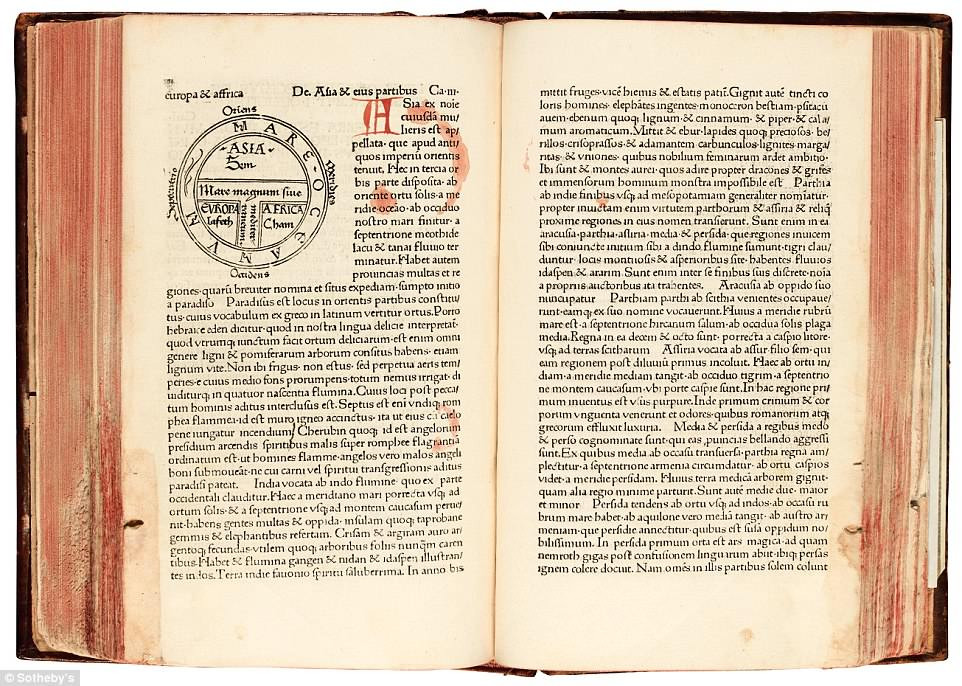 europa & affrica De. Asia & eius partibus Ca·iii
Oriens
MARE OCEANUM
Septentrio
Meridies
ASIA
Sem
Mare magnum siue
mediterraneum
EVROPA
Iafeth
AFRICA
Cham
Occidens
ASia ex noie
cuiusdā mu
lieris est ap/
pellata· que apud anti/
quos imperiū orientis
tenuit. Hec in tercia or
bis parte disposita· ab
oriente ortu solis· a me
ridie·oceāo·ab occiduo
nostro mari finitur· a
septentrione meothide
lacu & tanai fluuio ter
minatur. Habet autem
prouincias multas et re
giones·quarū breuiter nomina et situs expediam·sumpto initio
a paradiso Paradisus est locus in orientis partibus constitu/
tus·cuius vocabulum ex greco in latinum vertitur ortus.Porro
hebraice eden dicitur·quod in nostra lingua delicie interpretat̃·
quod vtrumqꝫ iunctum facit ortum deliciarum·est enim omni
genere ligni & pomiferarum arborum consitus habens· etiam
lignum vite. Non ibi frigus· non estus· sed perpetua aeris tem/
peries·e cuius medio fons prorumpens·totum nemus irrigat· di
uiditurqꝫ in quatuor nascentia flumina. Cuius loci post pecca/
tum hominis aditus interclusus est. Septus est eni vndiqꝫ rom
phea flammea·id est muro igneo accinctus·ita ut eius cū caelo
pene iungatur incendium Cherubin quoqꝫ id est angelorum
presidium arcendis spiritibus malis super romphee flagrantiā
ordinatum est·ut homines flamme·angelos vero malos angeli
boni submoueāt·ne cui carni vel spiritui transgressionis aditus
paradisi pateat. India vocata ab indo flumine· quo ex parte
occidentali clauditur. Haec a meridiano mari porrecta vsqꝫ ad
ortum solis· & a septentrione vsqꝫ ad montem caucasum perue/
nit·habens gentes multas & oppida· insulam quoqꝫ taprobane
gemmis & elephantibus refertam. Crisam & argiram auro ar/
gentoqꝫ fecundas·vtilem quoqꝫ arboribus foliis nunq̃m caren
tibus.Habet & flumina gangen & nidan & idaspen illustran/
tes indos. Terra indie fauonio spiritu saluberrima. In anno bis
mittit fruges·vice hiemis & estatis patit̃. Gignit autē tincti co
loris homines· elephātes ingentes·monoceron bestiam·psitacū
auem·ebenum quoqꝫ lignum & cinnamum· & piper & cala/
mum aromaticum. Mittit & ebur·lapides quoqꝫ preciosos· be/
rillos·crisoprassos· & adamantem·carbunculos·lignites·marga/
ritas· & vniones· quibus nobilium feminarum ardet ambitio·
Ibi sunt & montes aurei·quos adire propter dracones & grifes
et immensorum hominum monstra impossibile est Parthia
ab indie finibus vsqꝫ ad mesopotamiam generaliter nominatur·
propter inuictam enim virtutem parthorum & assiria & reliqꝫ
proxime regiones in eius nomen transierunt. Sunt enim in ea
aracusia·parthia·assiria·media & persida·que·regiones inuicem
sibi coniuncte initium sibi a indo flumine sumunt·tigri clau/
duntur·locis montiosis & asperioribus site· habentes fluuios
idaspen & ararim. Sunt enim inter se finibus suis discrete·noīa
a propriis auctoribus ita trahentes. Aracusia ab oppido suo
nuncupatur Parthiam parthi ab scithia venientes occupaue/
runt·eamqꝫ ex suo nomine vocauerunt. Huius a meridie rubrū
mare est·a septentrione hircanum salum·ab occidua solis plaga
media.Regna in ea decem & octo sunt· porrecta a caspio litore·
vsqꝫ ad terras scitharum Assiria vocata ab assur·filio sem·qui
eam regionem post diluuiū primus incoluit. Haec ab ortu in/
diam·a meridie mediam tangit·ab occiduo tigrim·a septentrio
ne montem caucasum·vbi porte caspie sunt. In hac regione pri/
mum inuentus est vsus purpure.Inde primum crinium & cor
porum vnguenta venerunt et odores·quibus romanorum atqꝫ
grecorum effluxit luxuria. Media & persida a regibus medo
& perso cognominate sunt·qui eas puincias bellando aggressi
sunt. Ex quibus media ab occasu transuersa· parthia regna am/
plectitur·a septentrione armenia circumdatur· ab ortu caspios
videt·a meridie persidam. Huius terra medicā arborem gignit·
quam alia regio minime parturit. Sunt autē medie due· maior
et minor Persida tendens ab ortu vsqꝫ ad indos·ab occasu ru
brum mare habet·ab aquilone vero mediā tangit· ab austro ar/
meniam·que persidie annectitur·quibus est susā oppidum no/
bilissimum. In persida primum orta est ars magica·ad quam
nemroth gigas post confusionem linguarum abiit·ibiqꝫ persas
ignem colere docuit. Nam·omēs in illis partibus solem colunt
© Sotheby's